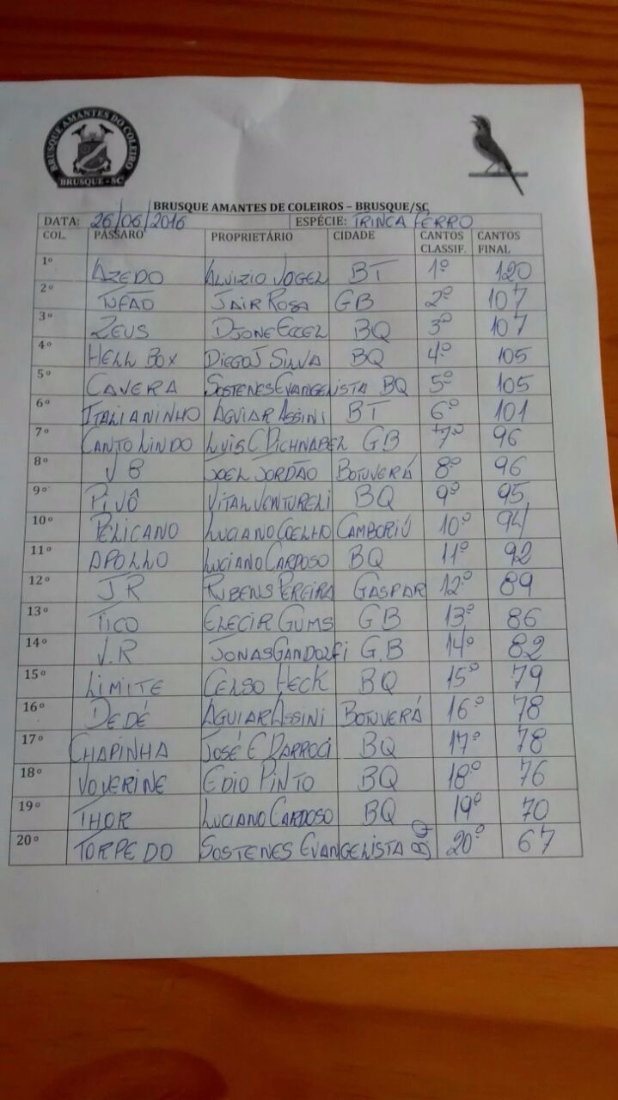 BRUSQUE AMANTES DO COLEIRO
BRUSQUE - SC
BRUSQUE AMANTES DE COLEIROS – BRUSQUE/SC
DATA: 26/06/2016 ESPÉCIE: TRINCA FERRO
COL. PÁSSARO PROPRIETÁRIO CIDADE CANTOS CLASSIF. CANTOS FINAL
1º AZEDO ALVIZIO VOGEL BT 1º 120
2º TUFÃO JAIR ROSA GB 2º 107
3º ZEUS DJONE ECCEL BQ 3º 107
4º HELL BOX DIEGO J SILVA BQ 4º 105
5º CAVERA SOSTENES EVANGENLISTA BQ 5º 105
6º ITALIANINHO AGUIAR ASSINI BT 6º 101
7º CANTO LINDO LUIS C PICHNABEL GB 7º 96
8º V8 JOEL JORDÃO BOTUVERÁ 8º 96
9º PIVÔ VITAL VENTURELI BQ 9º 95
10º PELICANO LUCIANO COELHO CAMBORIÚ 10º 94
11º APOLLO LUCIANO CARDOSO BQ 11º 92
12º JR RUBENS PEREIRA GASPAR 12º 89
13º TICO ELECIR GUMS GB 13º 86
14º V.R JONAS GANDOLFI G.B 14º 82
15º LIMITE CELSO HECK BQ 15º 79
16º DEDÉ AGUIAR ASSINI BOTUVERÁ 16º 78
17º CHAPINHA JOSÉ C DARROCI BQ 17º 78
18º VOVERINE EDIO PINTO BQ 18º 76
19º THOR LUCIANO CARDOSO BQ 19º 70
20º TORPEDO SOSTENES EVANGELISTA BQ 20º 67